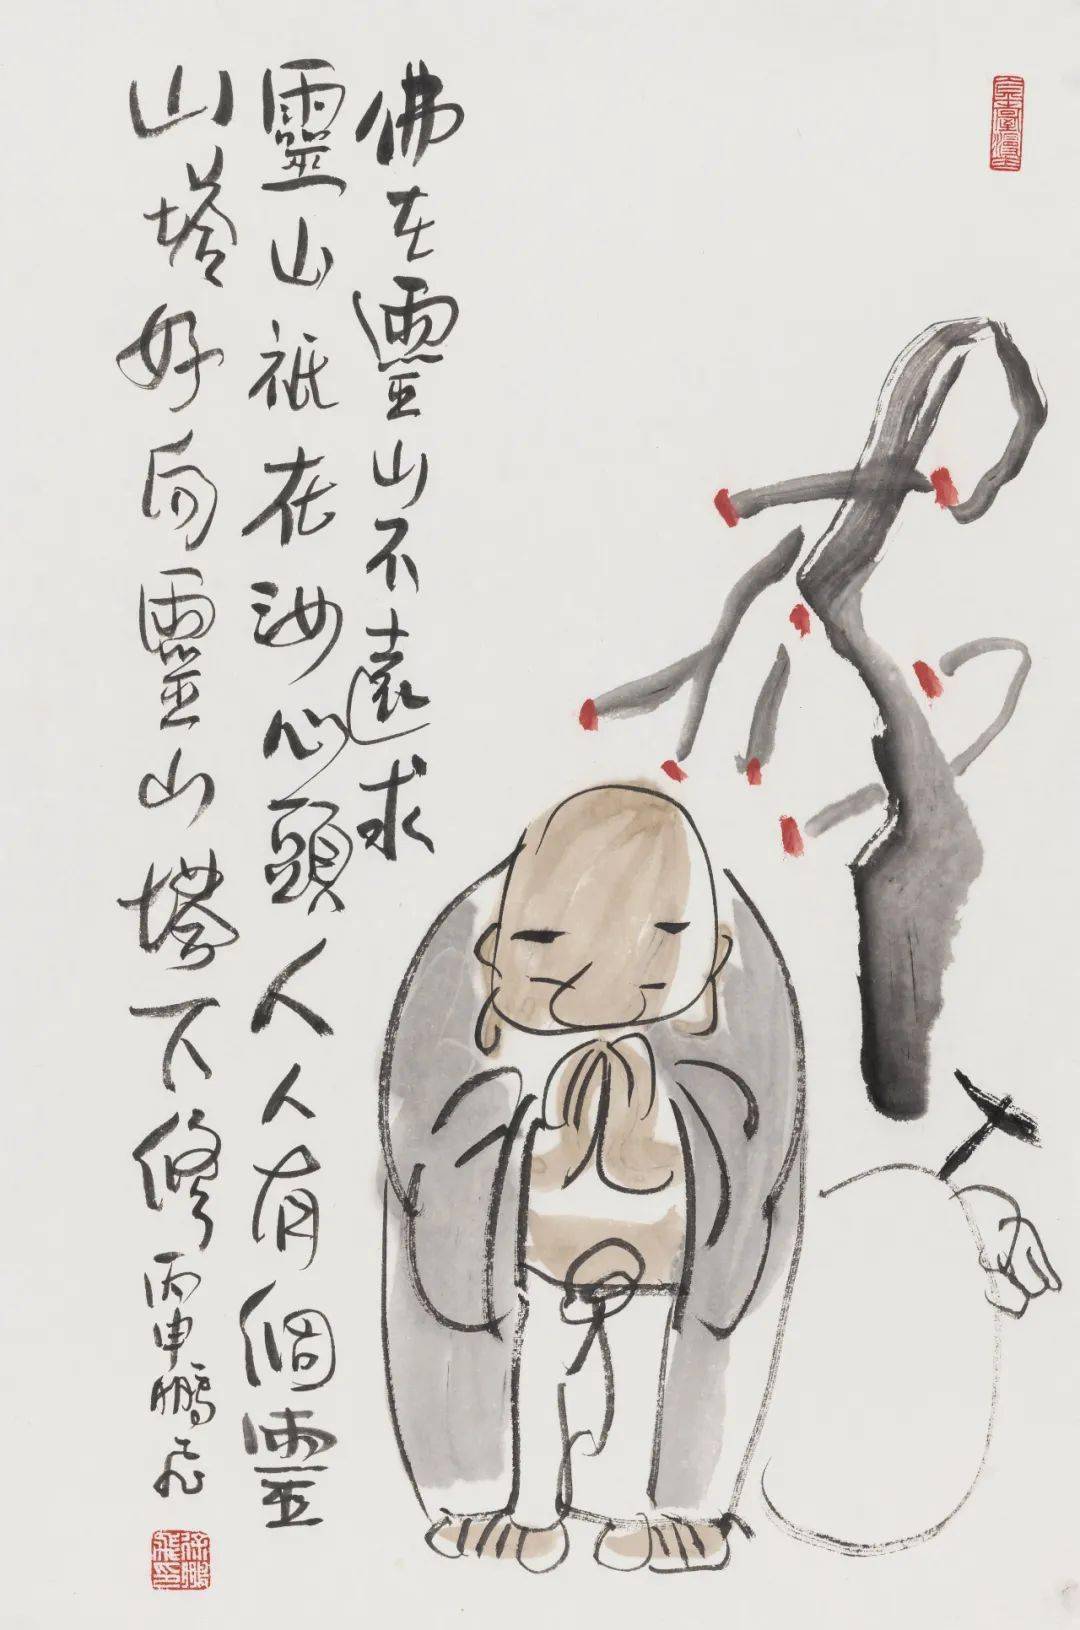 佛在靈山不遠求
靈山祇在汝心頭人人有個靈
山塔好向靈山塔下修 丙申鵬飛
徐鵬飛印